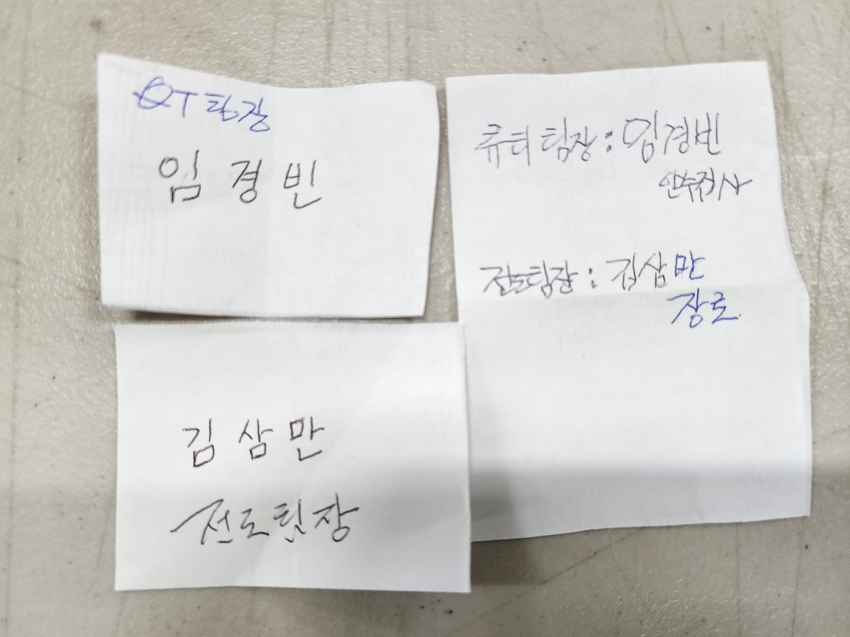 QT팀장
임경빈
큐티팀장 : 임경빈
안수집사
전도팀장 : 김삼만
장로
김삼만
전도팀장